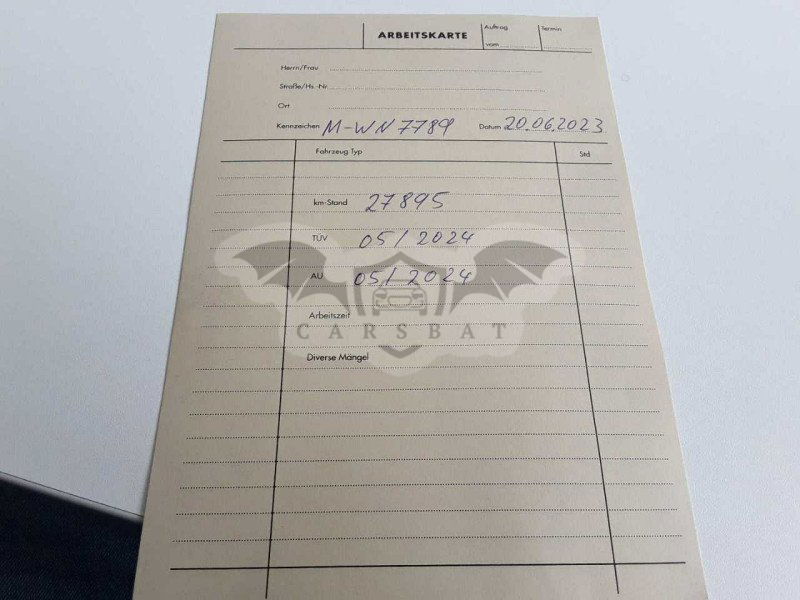 ARBEITSKARTE
Auftrag
vom
Termin
Herrn/Frau
Straße/Hs.-Nr.
Ort
Kennzeichen M-WN 7789 Datum 20.06.2023
Fahrzeug Typ Std
km-Stand 27895
TÜV 05/2024
AU 05/2024
Arbeitszeit
CARSBAT
Diverse Mängel